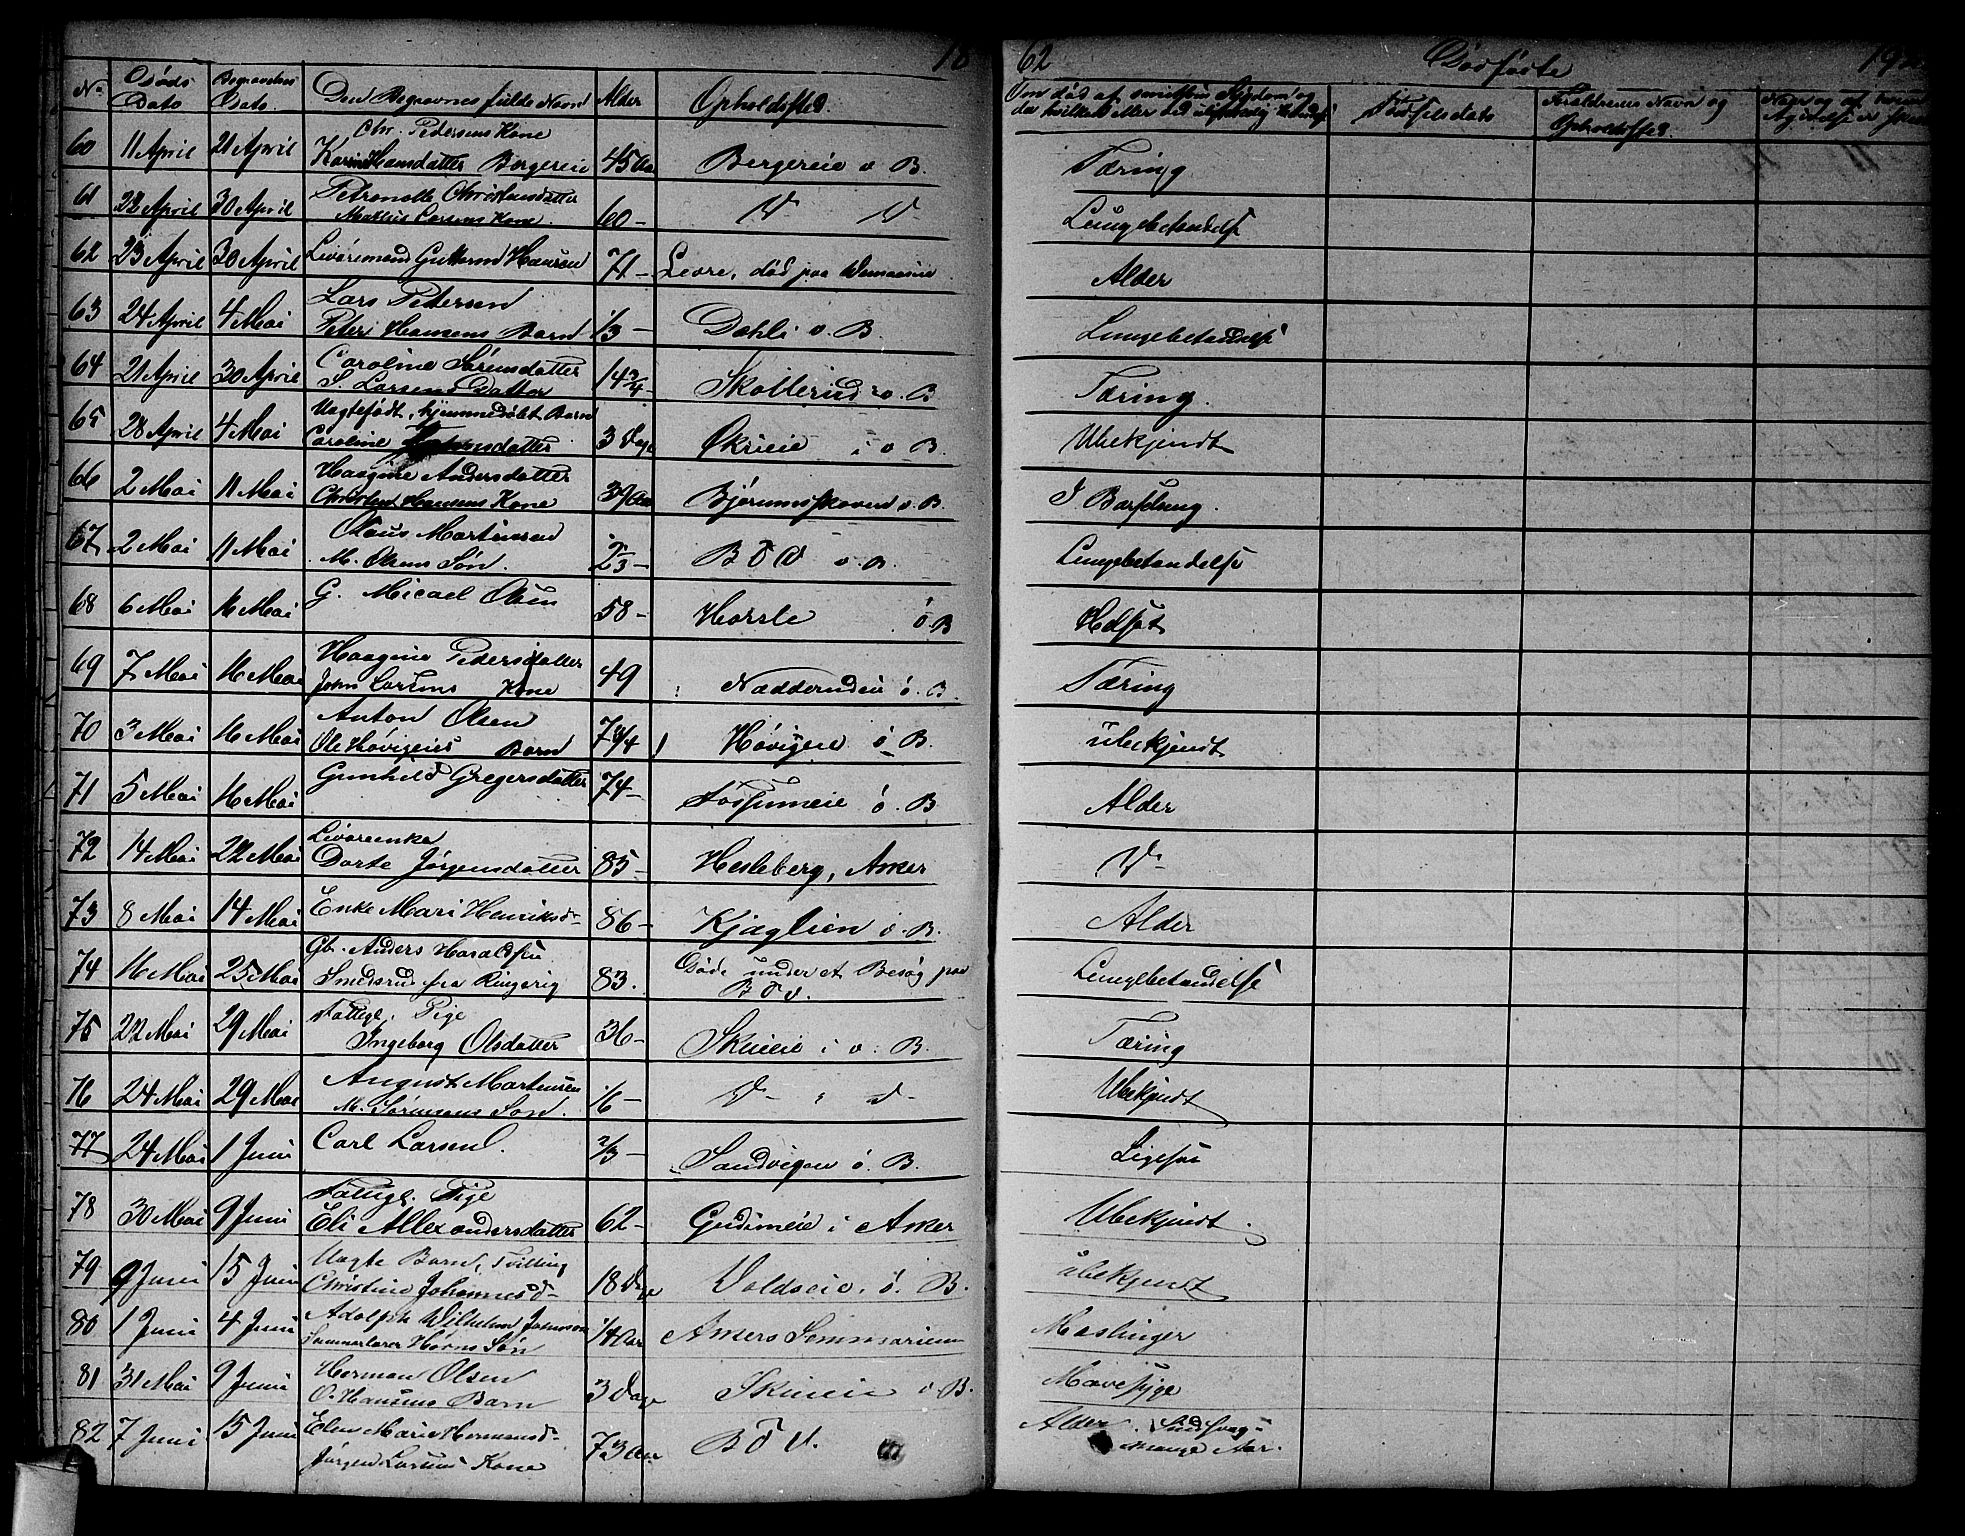 18 62 Dødsførte
No Døds Dato Begravelses Dato Den Begravnes fulde Navn Alder Opholdssted
Om død af smitsom Sygdom og da hvilken eller ved Fødselsdato Forældrenes Navn og Opholdssted
60 11 April 21 April Chr. Pedersens Kone
Karin Hansdatter Bergereie 45 Aar Bergereie v B. Tæring
61 22 April 30 April Petronelle Christensdatter
Mathis Larsens Kone. 60 - D D Lungebetændelse
62 23 April 30 April Livøremand Guttorm Hansen 71 - Levre, død paa Alder
63 24 April 4 Mai Lars Petersen
Peter Hansens Barn 1/3 - Dahli v. B. Lungebetændelse
64 21 April 30 April Caroline Sørensdatter
S. Larsens Datter 14 3/4 - Skollerud v. B Tæring.
65 28 April 4 Mai Uægtefødt, hjemmedøbt Barn
Caroline 3 Dage Økrieie i v B. Ubekjendt
66 2 Mai 11 Mai Haagine Andersdatter
Christen Hansens Kone Bjørumsskoven v. B. I Barselseng.
67 2 Mai 11 Mai Olaus Martinsen
M. Olsens Søn. B Ø V v. B. Lungebetændelse
68 6 Mai 16 Mai G. Micael Olsen 58 - Horsle ø. B Hdsot
69 7 Mai 16 Mai Haagine Pedersdatter
John Larsens Kone 49 Nadderudeie ø. B. Tæring
70 3 Mai 16 Mai Anton Olsen
Ole Høvigeies Barn 7 3/4 Høvigeie ø B. ubekjendt
71 5 Mai 16 Mai Gunhild Gregersdatter 74 - Fossumeie ø. B Alder
72 14 Mai 22 Mai Livøreenke
Dorte Jørgensdatter 85 - Hesleberg, Asker D
73 8 Mai 14 Mai Enke Mari Henriksd- 86 - Kjaglien v. B. Alder
74 16 Mai 25 Mai Gb. Anders Haraldsen
Smedsrud fra Ringerig 83. Døde under et Besøg paa
B Ø V. Lungebetændelse
75 22 Mai 29 Mai Fattigl. Pige
Ingeborg Olsdatter 36 - Skuieie i v. B. Tæring
76 24 Mai 29 Mai August Martinsen
M. Sørensens Søn. 16 - D - d - Ubekjendt
77 24 Mai 1 Juni Carl Larsen. 2/3 - Sandvigen ø. B. Ligesaa
78 30 Mai 9 Juni Fattigl. Pige
Eli Allexandersdatter 62 - Gudimeie i Asker Ubekjendt.
79 9 Juni 15 Juni Uægte Barn, Tvilling
Christine Johannesd- 18 Dage Voldseie. ø. B. ubekjendt
80 1 Juni 4 Juni Adolph Wilhelm
Hørns Søn Askers Seminarium Mæslinger
81 31 Mai 9 Juni Herman Olsen
O. Hansens Barn 3 Dage Skuieie v. B. Mavesyge
82 7 Juni 15 Juni Elen Marie Hermansd-
Jørgen Larsens Kone 73 Aar B Ø V. Alder. Sindsvag i
mange Aar.